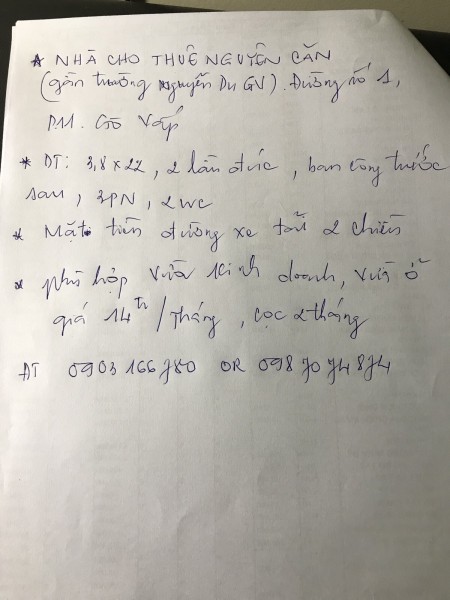 * NHÀ CHO THUÊ NGUYÊN CĂN
(gần trường Nguyễn Du GV). Đường số 1,
P11. Gò Vấp
* DT: 3,8 x 22, 2 lần đúc, ban công trước
sau, 3PN, 2WC
* Mặt tiền đường xe tải 2 chiều
* phù hợp vừa kinh doanh, vừa ở
giá 14th/tháng, cọc 2 tháng
ĐT 0903 166 780 OR 098 70 74 874